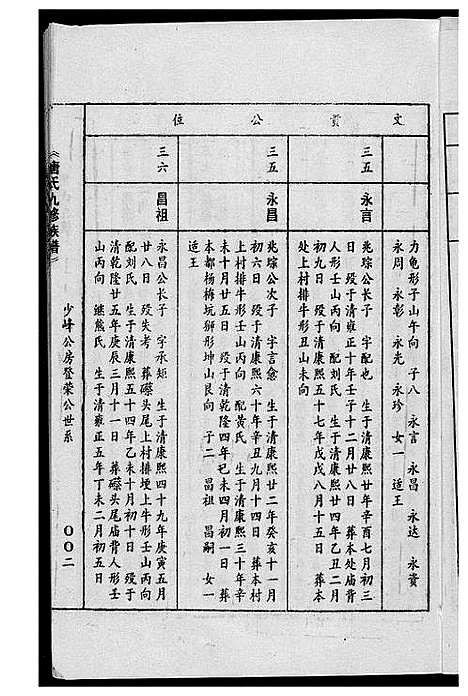 文貴公位
力龟形子山午向　子八　永言　永昌　永达　永資
永周　永彰　永光　永珍　女一　适王
三五
永言
兆琮公长子　字配也　生于清康熙廿年辛酉七月初三
日　殁于清雍正十年壬子十二月廿八日　葬本处庙背
人形壬山丙向　配刘氏　生于清康熙廿四年乙丑二月
初九日　殁于清康熙五十七年戊戌八月十五日　葬本
处上村排牛形丑山未向
三五
永昌
兆琮公次子　字言愈　生于清康熙廿二年癸亥十一月
初六日　殁于清康熙六十年辛丑九月十四日　葬本村
上村排牛形壬山丙向　配黄氏　生于清康熙三十年辛
未十月廿五日　殁于清乾隆四年己未四月初一日　葬
本都杨梅坑狮形坤山艮向　子二　昌祖　昌嗣　女一
适王
三六
昌祖
永昌公长子　字承矩　生于清康熙四十九年庚寅五月
廿八日　殁失考　葬磜头尾上村排垅上牛形壬山丙向
配刘氏　生于清康熙五十四年乙未十月初十日　殁于
清乾隆廿五年庚辰三月十一日　葬磜头尾庙背人形壬
山丙向　继熊氏　生于清雍正五年丁未二月初五日
《唐氏九修族谱》
少峰公房登荣公世系
〇〇二